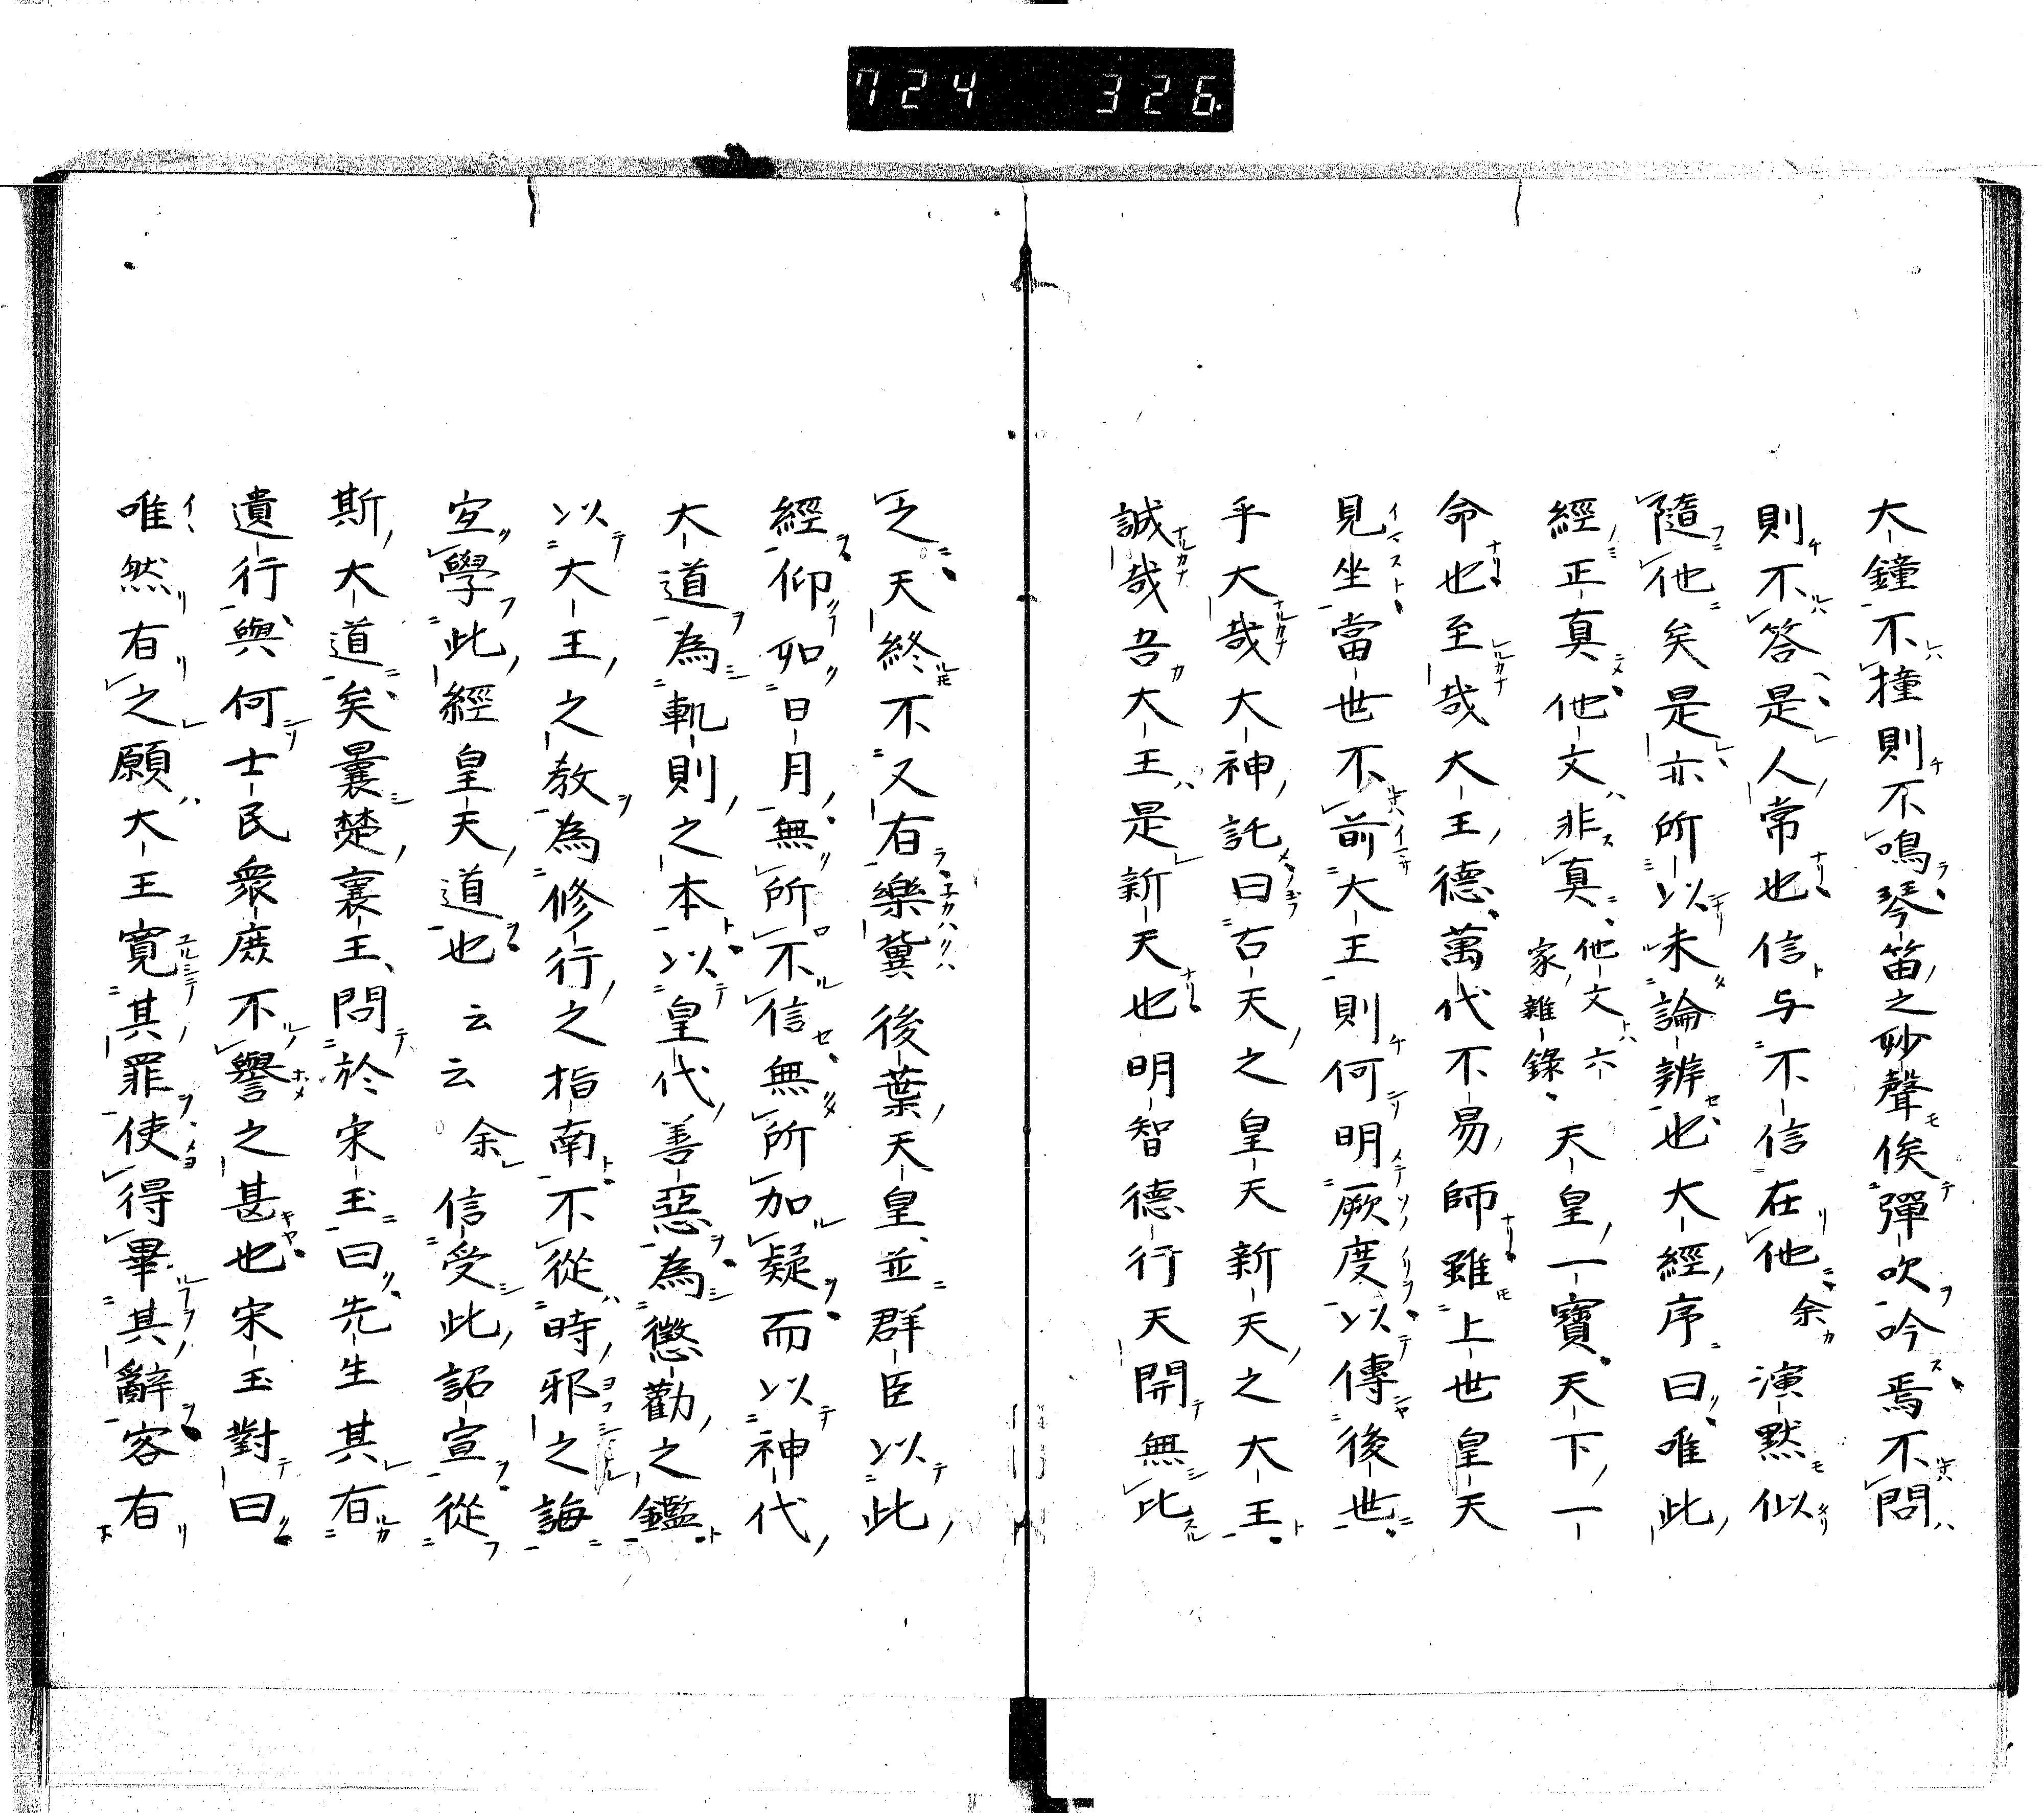 724 326
大鐘不撞則不鳴琴笛之妙聲俟彈吹吟焉不問
則不答是人常也信与不信在他余演黙似
隨他矣是亦所以未論辨也大經序曰唯此
經正真他文非真他文六家雜錄天皇一寶天下一
命也至哉大王德萬代不易師雖上世皇天
見坐當世不前大王則何明厥度以傳後世
乎大哉大神託曰古天之皇天新天之大王
誠哉吾大王是新天也明智德行天開無比
乏天終不又有樂冀後葉天皇並群臣以此
經仰如日月無所不信無所加疑而以神代
大道為軌則之本以皇代善惡為懲勸之鑑
以大王之教為修行之指南不從時邪之誨
宜學此經皇天道也云云余信受此詔宣從
斯大道矣曩楚襄王問於宋玉曰先生其有
遺行與何士民衆庶不譽之甚也宋玉對曰
唯然有之願大王寬其罪使得畢其辭客有